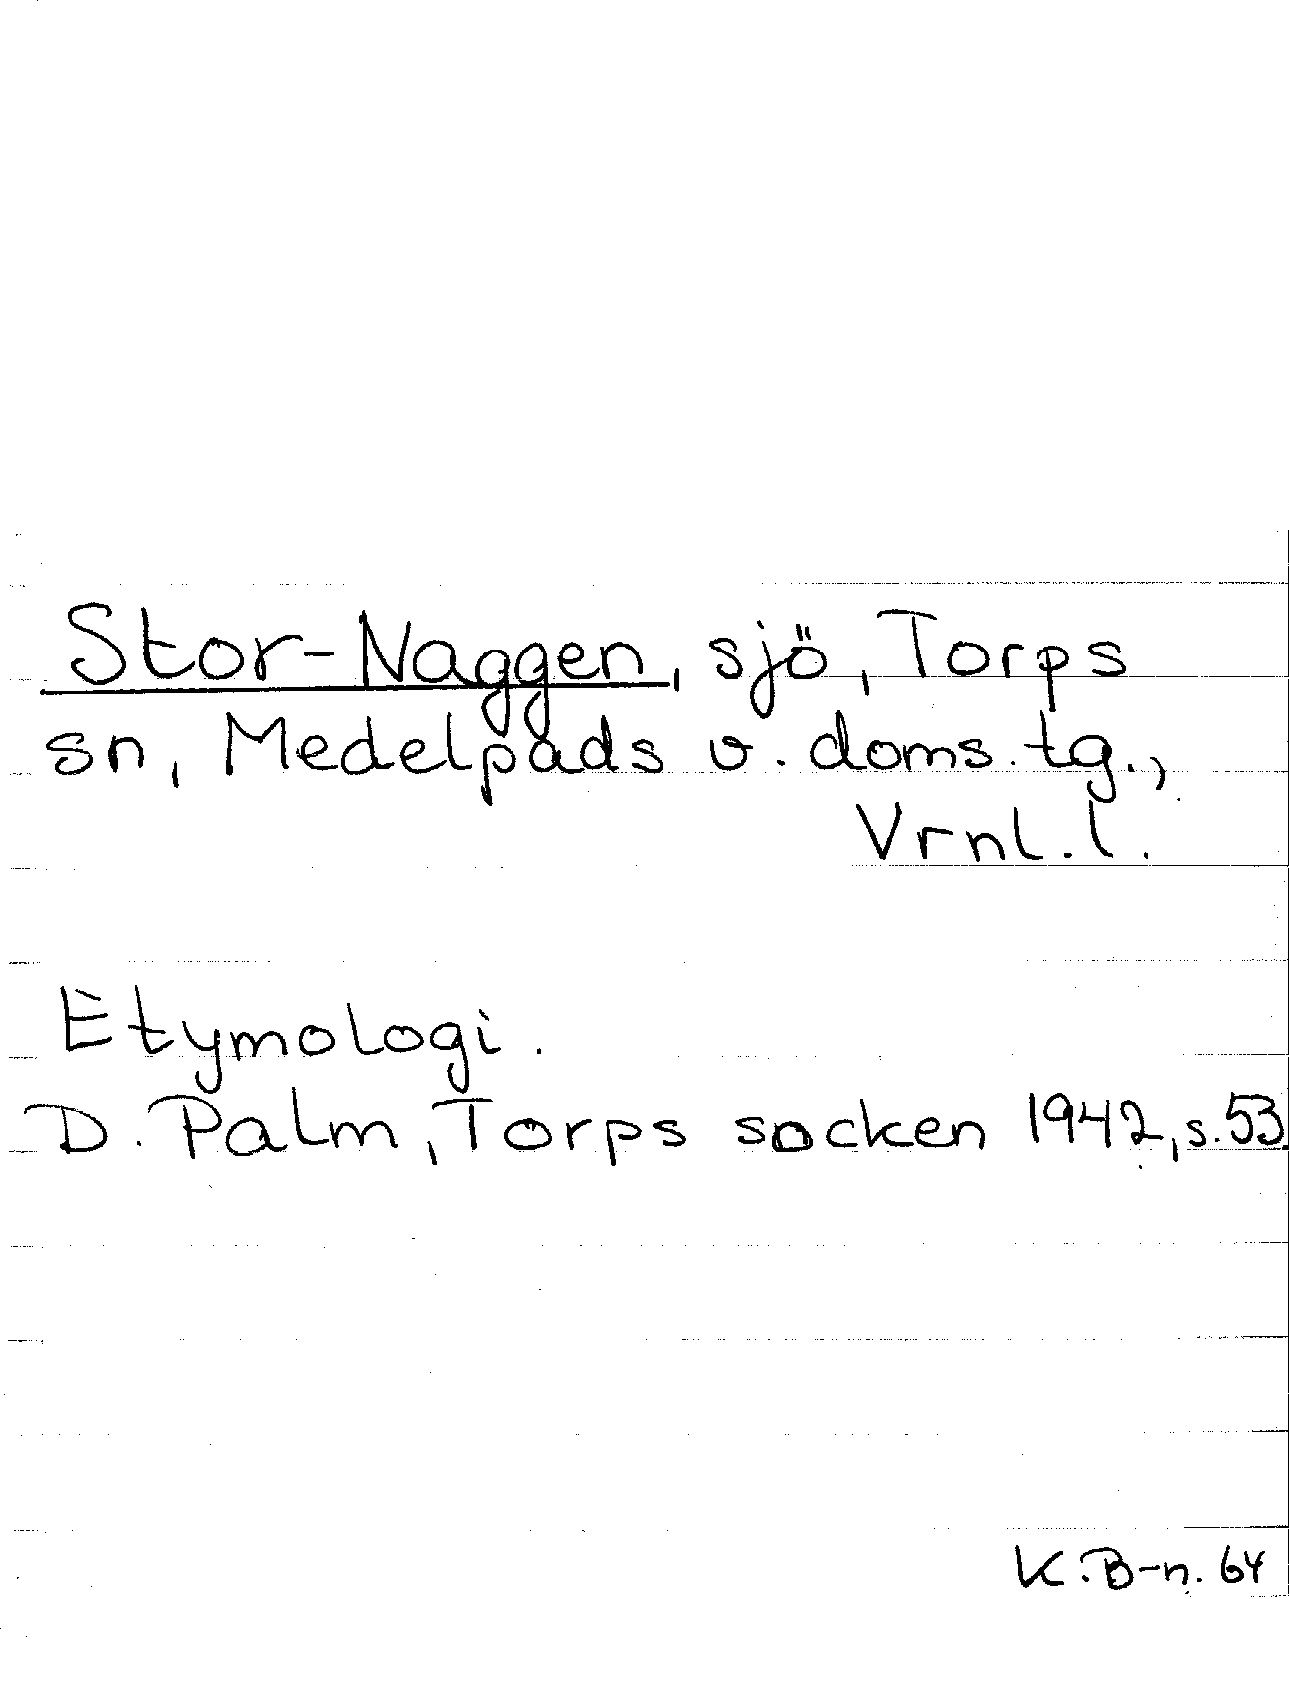 Stor-Naggen, sjö, Torps
sn, Medelpads v. doms. tg.,
Vrnl. l.
Etymologi.
D. Palm, Torps socken 1942, s. 53.
K. B-n. 64